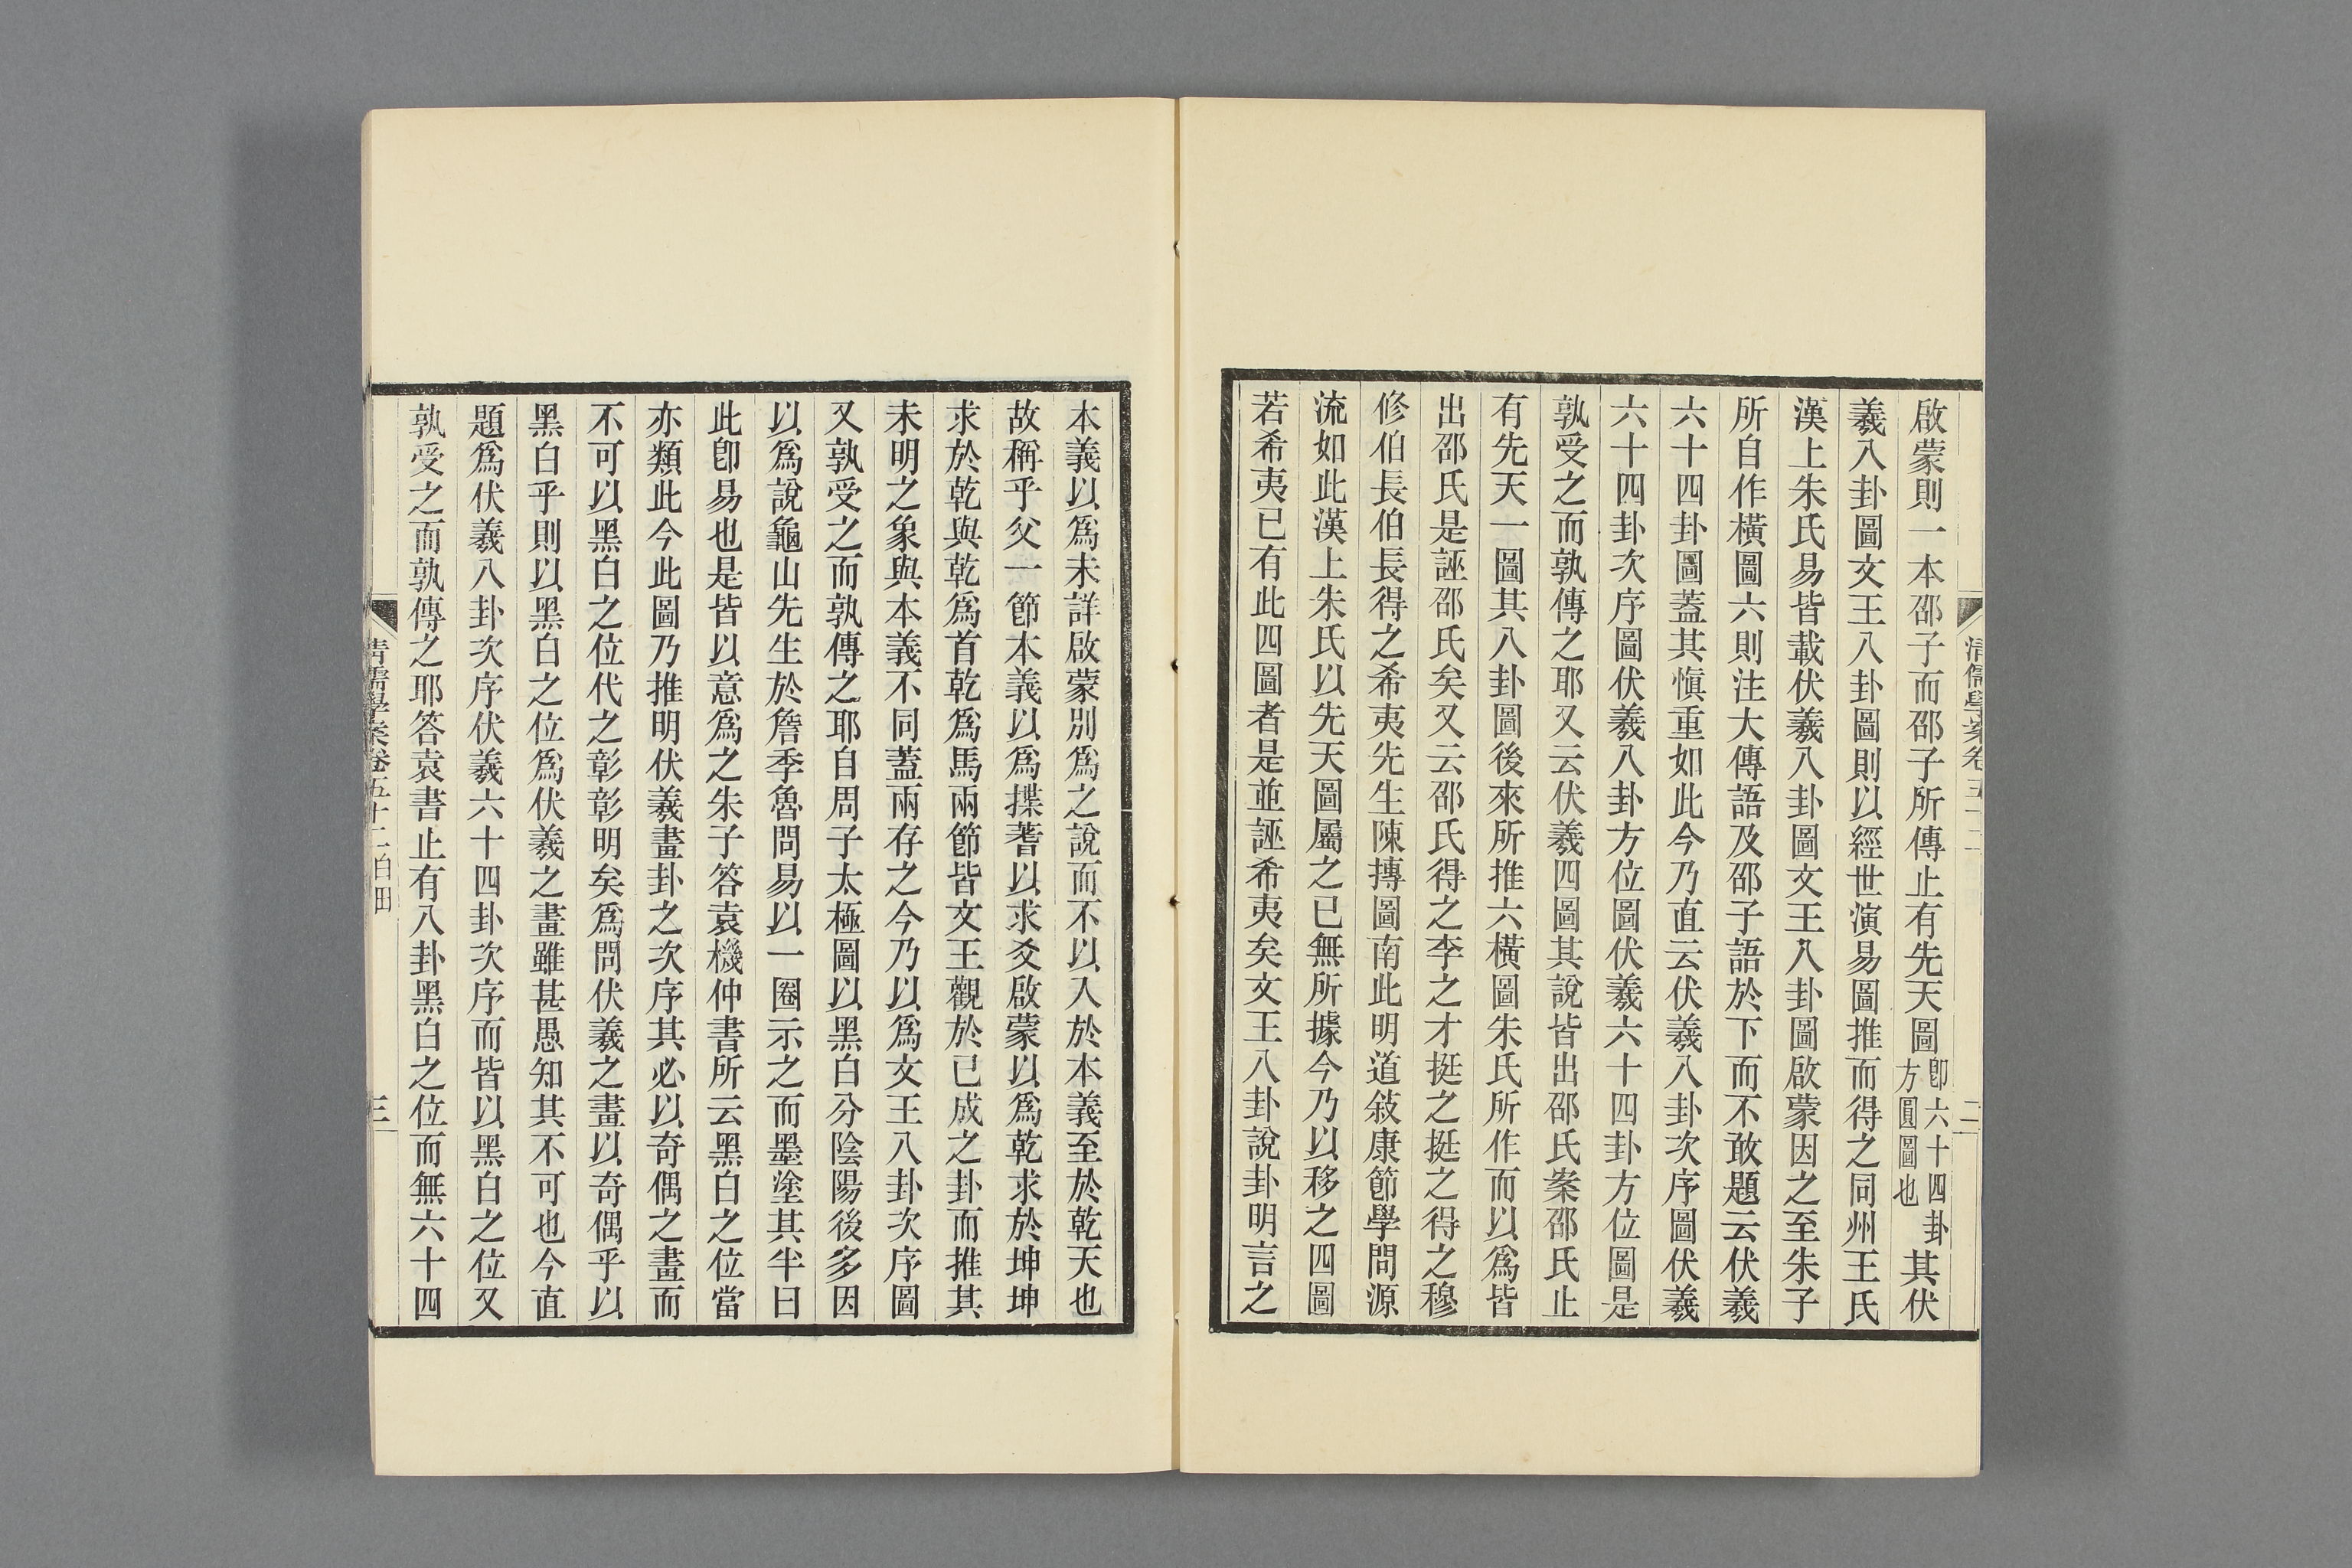 啟蒙則一本邵子而邵子所傳止有先天圖卽六十四卦方圓圖也其伏
羲八卦圖文王八卦圖則以經世演易圖推而得之同州王氏
漢上朱氏易皆載伏羲八卦圖文王八卦圖啟蒙因之至朱子
所自作橫圖六則注大傳語及邵子語於下而不敢題云伏羲
六十四卦圖蓋其慎重如此今乃直云伏羲八卦次序圖伏羲
六十四卦次序圖伏羲八卦方位圖伏羲六十四卦方位圖是
孰受之而孰傳之耶又云伏羲四圖其說皆出邵氏案邵氏止
有先天一圖其八卦圖後來所推六橫圖朱氏所作而以爲皆
出邵氏是誣邵氏矣又云邵氏得之李之才挺之挺之得之穆
修伯長伯長得之希夷先生陳摶圖南此明道敍康節學問源
流如此漢上朱氏以先天圖屬之已無所據今乃以移之四圖
若希夷已有此四圖者是並誣希夷矣文王八卦說卦明言之
清儒學案卷五十二
二
本義以爲未詳啟蒙別爲之說而不以入於本義至於乾天也
故稱乎父一節本義以爲揲蓍以求爻啟蒙以爲乾求於坤坤
求於乾與乾爲首乾爲馬兩節皆文王觀於已成之卦而推其
未明之象與本義不同蓋兩存之今乃以爲文王八卦次序圖
又孰受之而孰傳之耶自周子太極圖以黑白分陰陽後多因
以爲說龜山先生於詹季魯問易以一圈示之而墨塗其半曰
此卽易也是皆以意爲之朱子答袁機仲書所云黑白之位當
亦類此今此圖乃推明伏羲畫卦之次序其必以奇偶之畫而
不可以黑白之位代之彰彰明矣爲問伏羲之畫以奇偶乎以
黑白乎則以黑白之位爲伏羲之畫雖甚愚知其不可也今直
題爲伏羲八卦次序伏羲六十四卦次序而皆以黑白之位又
孰受之而孰傳之耶答袁書止有八卦黑白之位而無六十四
清儒學案卷五十二 白田
三